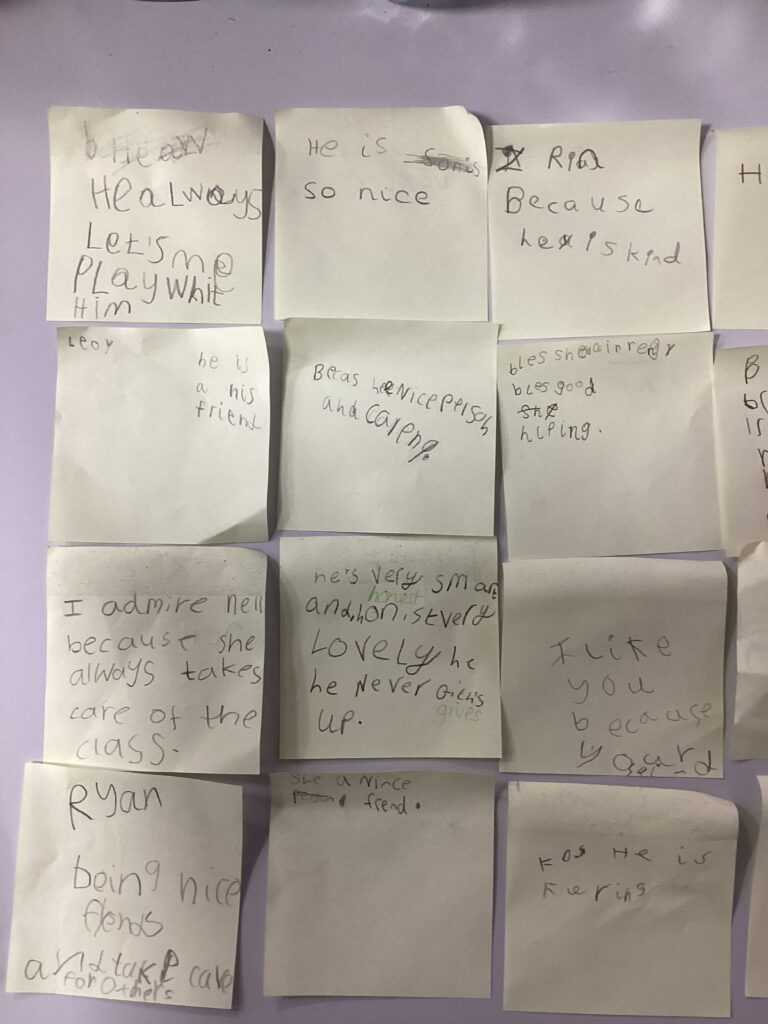 He always
Let's me
PLay whit
Him
He is
so nice
Because
he is kind
Leoy
he is
a nis
friend
Becas hee Nice persoh
and careng.
bles good
hlping.
I admire nell
because she
always takes
care of the
class.
he's very smart
honest
and, honist very
LOVELY he
he Never Gich's
gives
up.
I like
you
because
Ryan
being nice
fiends
and take care
for others
She a Nince
person frend.
Kos He is
Kering
H
B